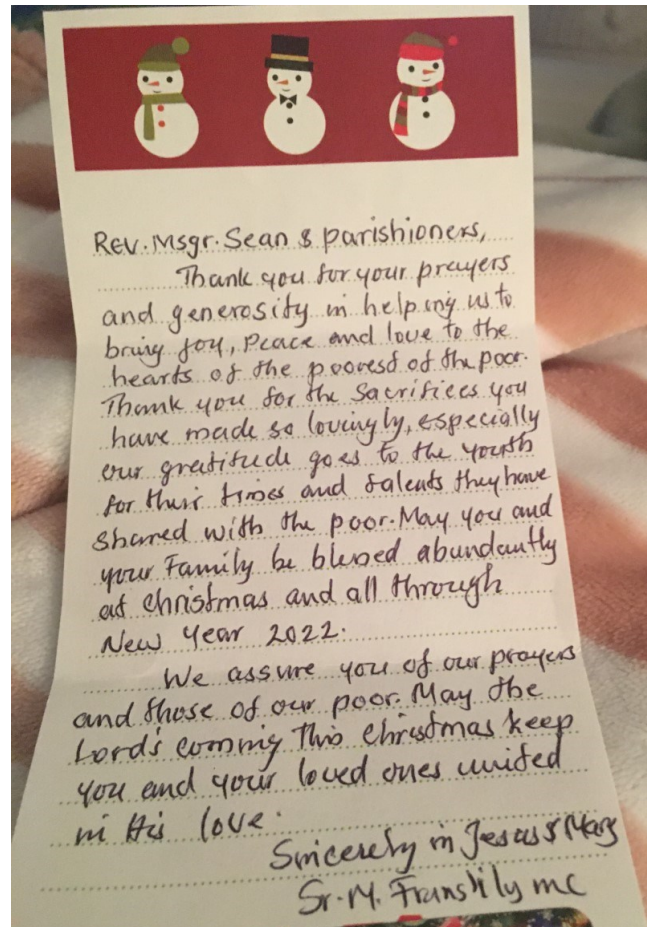 Rev. Msgr. Sean & parishioners,
Thank you for your prayers
and generosity in helping us to
bring joy, Peace and love to the
hearts of the poorest of the poor.
Thank you for the Sacrifices you
have made so lovingly, especially
our gratitude goes to the youth
for their times and talents they have
shared with the poor. May you and
your Family be blessed abundantly
at Christmas and all through
New Year 2022.
We assure you of our prayers
and those of our poor. May the
Lord's coming This Christmas keep
you and your loved ones united
in His love.
Sincerely in Jesus & Mary
Sr. M. mc